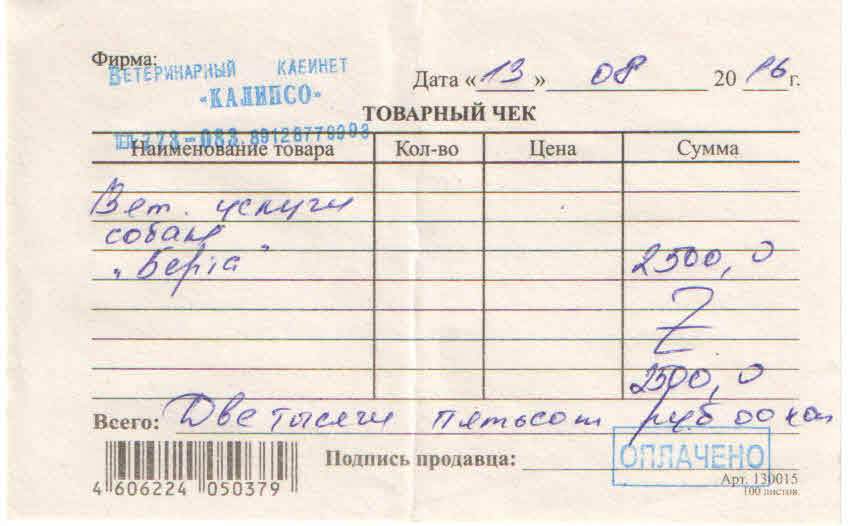 Фирма:
ВЕТЕРИНАРНЫЙ КАБИНЕТ
«КАЛИПСО»
Дата «13» 08 2016 г.
ТОВАРНЫЙ ЧЕК
Наименование товара Кол-во Цена Сумма
Вет. услуги
собаке
"Берта" 2500,0
Z
2500,0
Всего: Две тысячи пятьсот руб 00 коп
Подпись продавца:
ОПЛАЧЕНО
4 606224 050379
Арт. 130015
100 листов.